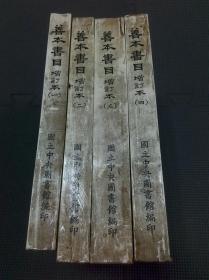 善本書目 增訂本 (一) 國立中央圖書館編印
善本書目 增訂本 (二) 國立中央圖書館編印
善本書目 增訂本 (三) 國立中央圖書館編印
善本書目 增訂本 (四) 國立中央圖書館編印